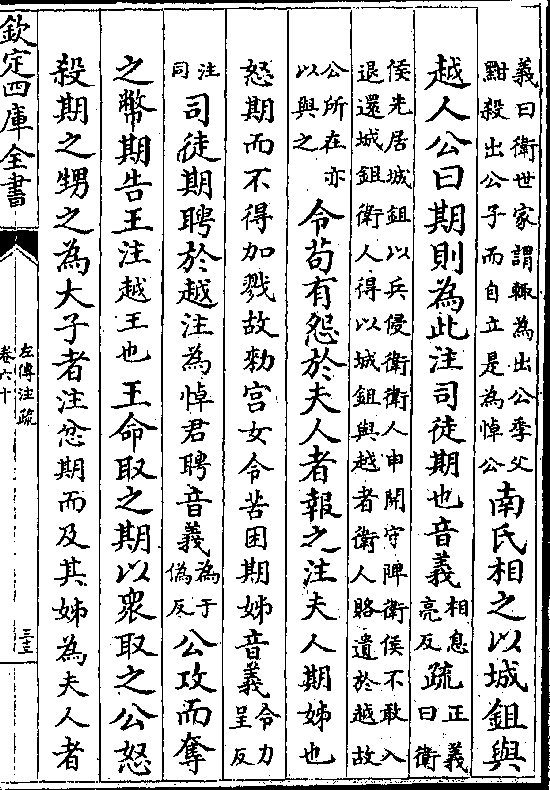 義曰衛世家謂輙為出公季父
黚殺出公子而自立是為悼公
南氏相之以城鉏與
越人公曰期則為此注司徒期也音義
相息
亮反
疏
正義
曰衛
侯先居城鉏以兵侵衛衛人申開守陴衛侯不敢入
退還城鉏衛人得以城鉏與越者衛人賂遺於越故
公所在亦
以與之
令苟有怨於夫人者報之注夫人期姊也
怒期而不得加戮故勑宫女令苦困期姊音義
令力
呈反
注
同
司徒期聘於越注為悼君聘音義
為于
偽反
公攻而奪
之幣期告王注越王也王命取之期以衆取之公怒
殺期之甥之為大子者注忿期而及其姊為夫人者
欽定四庫全書
左傳注疏
卷六十
三十三